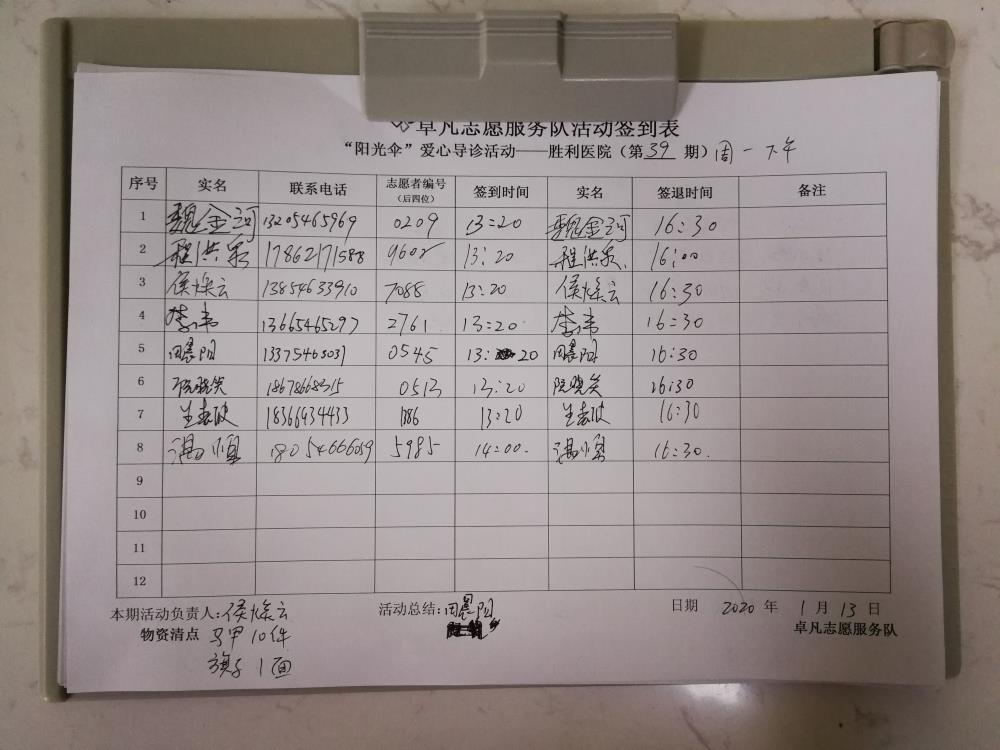 卓凡志愿服务队活动签到表
“阳光伞”爱心导诊活动——胜利医院（第39期）周一下午
序号 实名 联系电话 志愿者编号（后四位） 签到时间 实名 签退时间 备注
1 魏金河 13205465969 0209 13:20 魏金河 16:30
2 程洪泉 17862171588 9602 13:20 程洪泉 16:00
3 侯焕云 13854633910 7088 13:20 侯焕云 16:30
4 李伟 13665465297 2761 13:20 李伟 16:30
5 田晨阳 13375465031 0545 13:20 田晨阳 16:30
6 阮晓笑 0513 13:20 阮晓笑 16:30
7 18366934433 1386 13:20 16:30
8 18054666059 5985 14:00. 16:30.
9
10
11
12
本期活动负责人:侯焕云 活动总结:田晨阳 日期 2020年1月13日
物资清点 马甲10件 卓凡志愿服务队
旗子1面